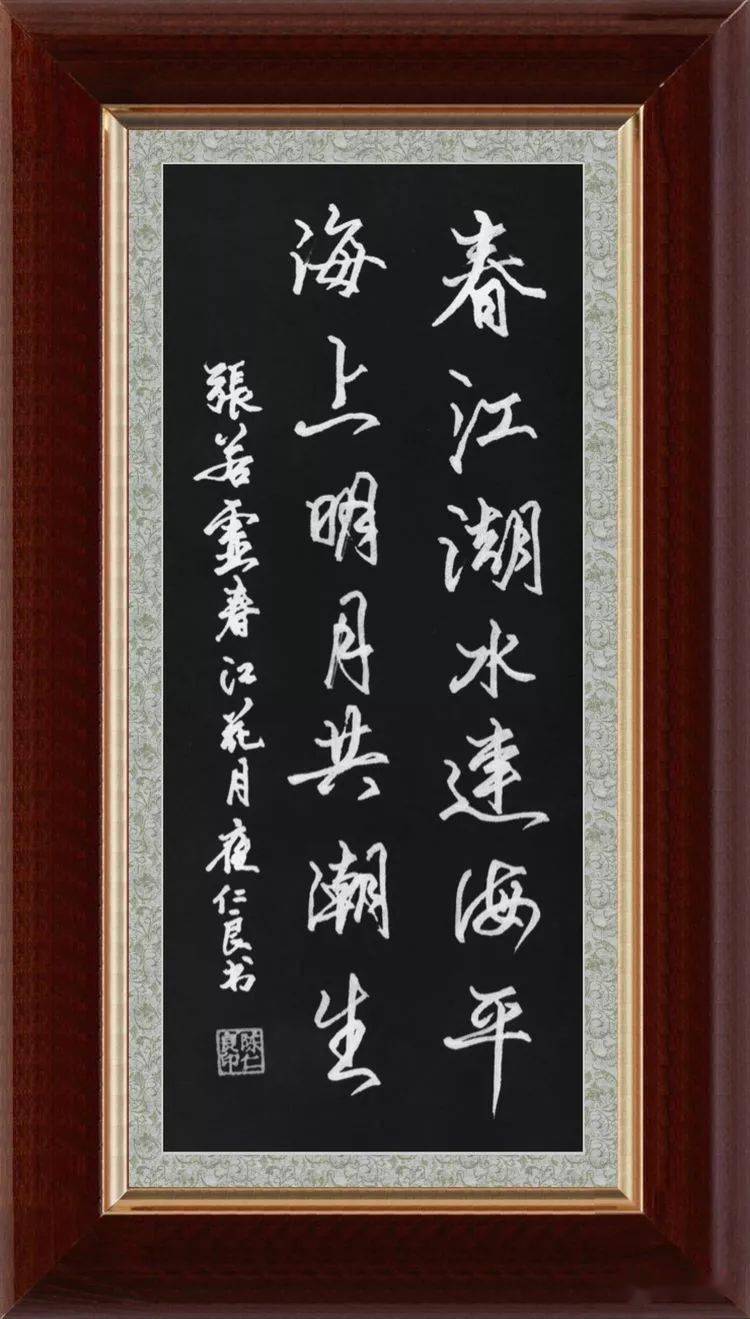 春江湖水連海平
海上明月共潮生
張若虚春江花月夜仁良书
陈仁良印